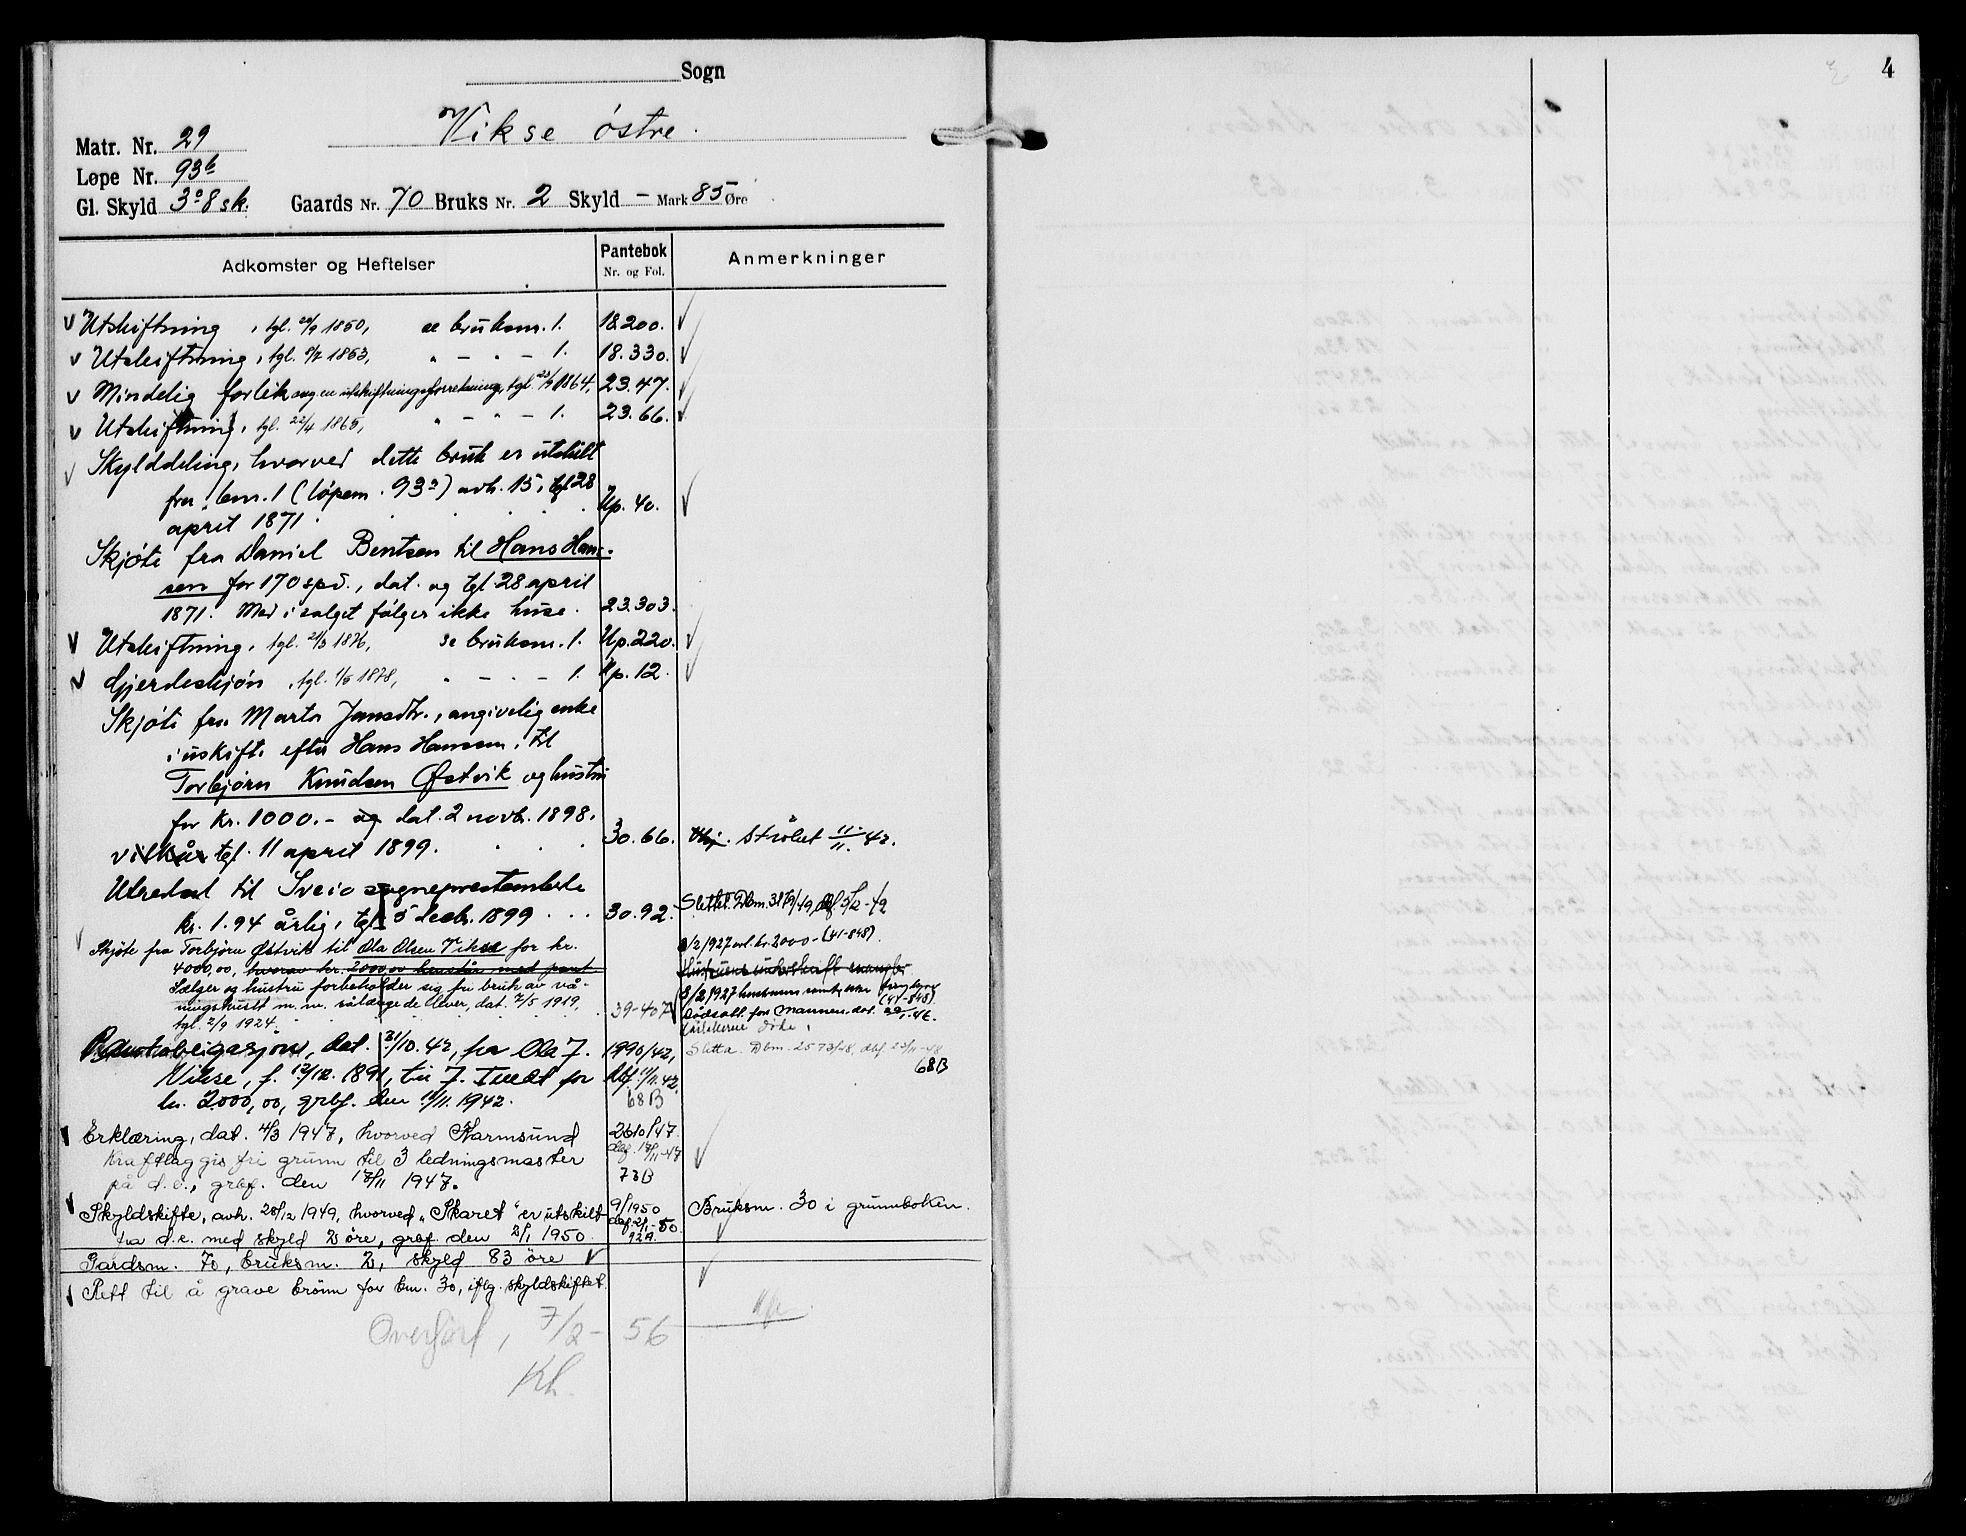 Sogn
Vikse østre.
Matr. Nr. 29
Løpe Nr. 93b
Gl. Skyld 3 o 8 sk. Gaards Nr. 70 Bruks Nr. 2 Skyld – Mark 85 Øre
Adkomster og Heftelser Pantebok Nr. og Fol. Anmerkninger
Utskiftning, tgl. 1850, se bruksnr. 1. 18.200.
Utskiftning, tgl. 1863, " – " – 1. 18.330.
Mindelig forlik ang. en utskiftningsforretning, tgl. 1864, 23.47.
Utskiftning, tgl. 22/4 1865, " – " – 1. 23.66.
Skylddeling, hvorved dette bruk er utskilt
fra bnr. 1 (løpenr. 93a) avh. 15, tgl 28
april 1871. Up. 40.
Skjøte fra Daniel Bentsen til Hans Han-
sen for 170 spd., dat. og tgl. 28 april
1871. Med i salget følger ikke huse. 23.303.
Utskiftning, tgl. 1876, se bruksnr. 1. Up. 220.
Gjerdeskjøn, tgl. 1/5 1878, " – " – 1. Up. 12.
Skjøte fra Marta Jansdtr., angivelig enke
i uskifte efter Hans Hansen, til
Torbjørn Knudsen Østvik og hustru
for kr. 1000.– og dat. 2 novb. 1898.
vilkår tgl. 11 april 1899. 30.66. strøket 11/11. 42.
Utredsel til Sveio sogneprestembede
kr. 1.94 årlig, tgl 5 decb. 1899 30.92. Slettet. Dbnr. 319/49, dbf. 5/2-49
Skjøte fra Torbjørn Østvik til Ola Olsen Vikse for kr.
4000,00, hvorav kr. 2000,00 henstår med pant
Sælger og hustru forbeholder sig fri bruk av vå-
ningshuset m. m. sålænge de lever, dat. 7/5 1919,
tgl. 2/9 1924. 39-407
8/2 1927 avl. kr. 2000.- (41-848).
Hustruens underskrift mangler
8/2 1927 hustruens samtykke (41-848).
Dødsatt. for mannen, dat.
Pantobligasjon, dat. 31/10. 42, fra Ola J. 1990/42, Sletta. Dbnr. 2573/48, dbf. 23/11-48
Vikse, f. 12/12. 1891, til J. Tveit for dbf. 11/11. 42. 68B
kr. 2000,00, grbf. den 11/11. 1942. 68B
Erklæring, dat. 4/3 1947, hvorved Karmsund 2610/47.
Kraftlag gis fri grunn til 3 ledningsmaster dbf. 17/11-47
på d.e., grbf. den 17/11 1947. 73B
Skyldskifte, avh. 28/12 1949, hvorved "Skaret" er utskilt 9/1950 Bruksnr. 30 i grunnboken.
fra d.e. med skyld 2 øre, grbf. den 2/1 1950. dbf. 2/1-50 92A.
Gardsnr. 70, bruksnr. 2, skyld 83 øre
Rett til å grave brønn for bnr. 30, iflg. skyldskiftet.
Overført, 7/2-56
Kh.
4